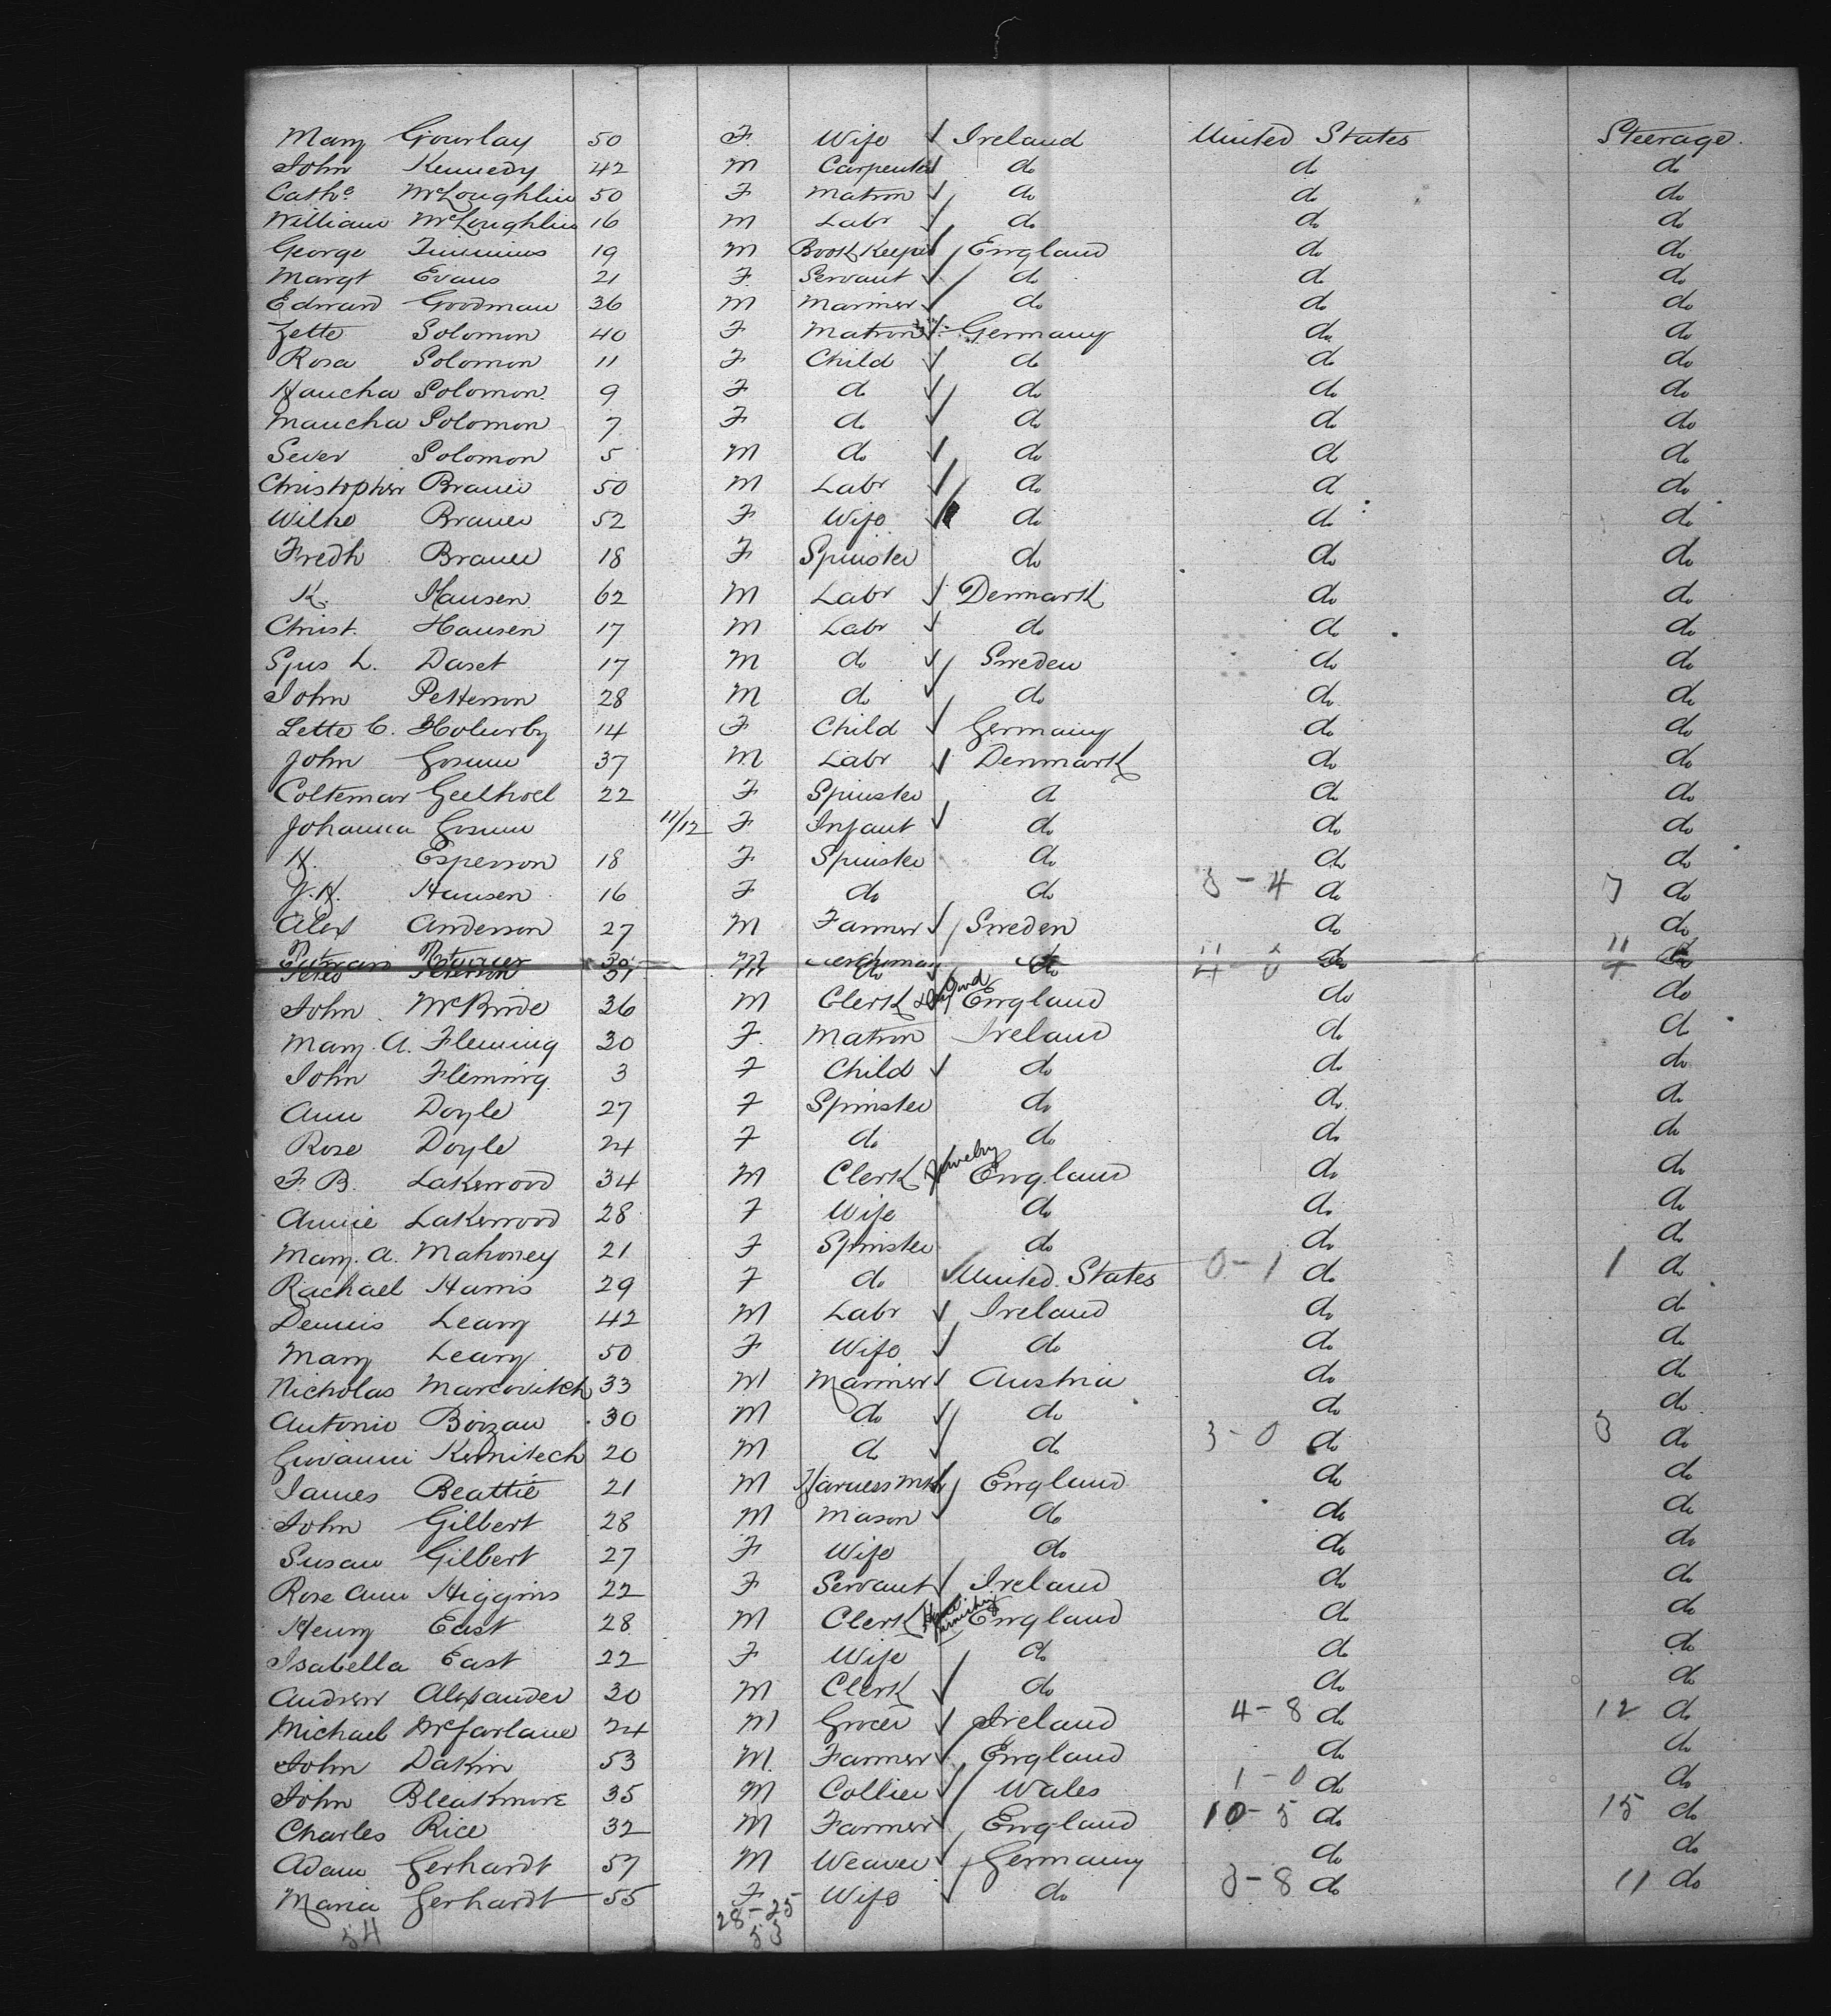 Mary Gourlay 50 F Wife ✓ Ireland United States Steerage.
John Kennedy 42 M Carpenter ✓ do do do
Cathe McLoughlin 50 F Matron ✓ do do do
William McLoughlin 16 M Labr ✓ do do do
George Timmins 19 M Book Keeper ✓ England do do
Margt Evans 21 F Servant ✓ do do do
Edward Goodman 36 M Mariner ✓ do do do
Zette Solomon 40 F Matron ✓ Germany do do
Rosa Solomon 11 F Child ✓ do do do
Haucha Solomon 9 F do ✓ do do do
Maucha Solomon 7 F do ✓ do do do
Sever Solomon 5 M do ✓ do do do
Christopher Brauer 50 M Labr ✓ do do do
Wilhe Brauer 52 F Wife ✓ do do do
Fredh Brauer 18 F Spinster do do do
K. Hansen 62 M Labr ✓ Denmark do do
Christ. Hansen 17 M Labr ✓ do do do
L. Daset 17 M do ✓ Sweden do do
John Petterson 28 M do ✓ do do do
Lette C. Holurby 14 F Child ✓ Germany do do
John 37 M Labr ✓ Denmark do do
Coltemar Geelhoel 22 F Spinster do do do
Johanna 11/12 F Infant ✓ do do do
H. Esperson 18 F Spinster do do do
J. H. Hansen 16 F do do 3-4 do 7 do
Alex Anderson 27 M Farmer ✓ Sweden do do
Peterson M do do do do
John McBride 36 M Clerk England do do
Mary A. Fleming 30 F. Matron Ireland do do
John Fleming 3 F Child ✓ do do do
Ann Doyle 27 F Spinster do do do
Rose Doyle 24 F do do do do
F. B. Lakewood 34 M Clerk Jewelry England do do
Annie Lakewood 28 F Wife do do do
Mary. A. Mahoney 21 F Spinster do do do
Rachael Harris 29 F do ✓ United States 0-1 do 1 do
Dennis Leary 42 M Labr ✓ Ireland do do
Mary Leary 50 F Wife ✓ do do do
Nicholas Marcovitch 33 M Mariner ✓ Austria do do
Antonio Boizau 30 M do ✓ do do do
Giovanni Kernitech 20 M do ✓ do 3-0 do 3 do
James Beattie 21 M Harness Mkr ✓ England do do
John Gilbert 28 M Mason ✓ do do do
Susan Gilbert 27 F Wife do do do
Rose Ann Higgins 22 F Servant ✓ Ireland do do
Henry East 28 M Clerk England do do
Isabella East 22 F Wife do do do
Andrew Alexander 30 M Clerk ✓ do do do
Michael McFarlane 24 M Grocer ✓ Ireland 4-8 do 12 do
John Dakin 53 M. Farmer ✓ England do do
John Bleakmore 35 M Collier ✓ Wales 1-0 do do
Charles Rice 32 M Farmer ✓ England 10-5 do 15 do
Adam Gerhardt 57 M Weaver ✓ Germany do do
Maria Gerhardt 55 F Wife ✓ do 3-8 do 11 do
54 28-25
53